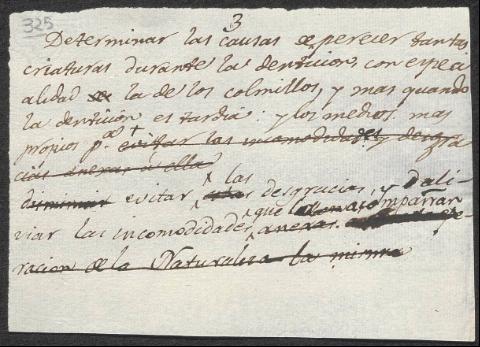 325
3
Determinar las causas de perecer tantas
criaturas durante la denticion, con espe
alidad de la de los colmillos, y mas quando
la denticion es tardia: y los medios mas
propios pa. evitar las incomodidades y desgra
cias anexas a ella
disminuir evitar las desgracias, y ali
viar las incomodidades que la acompañan
anexas
racion de la Naturaleza la misma